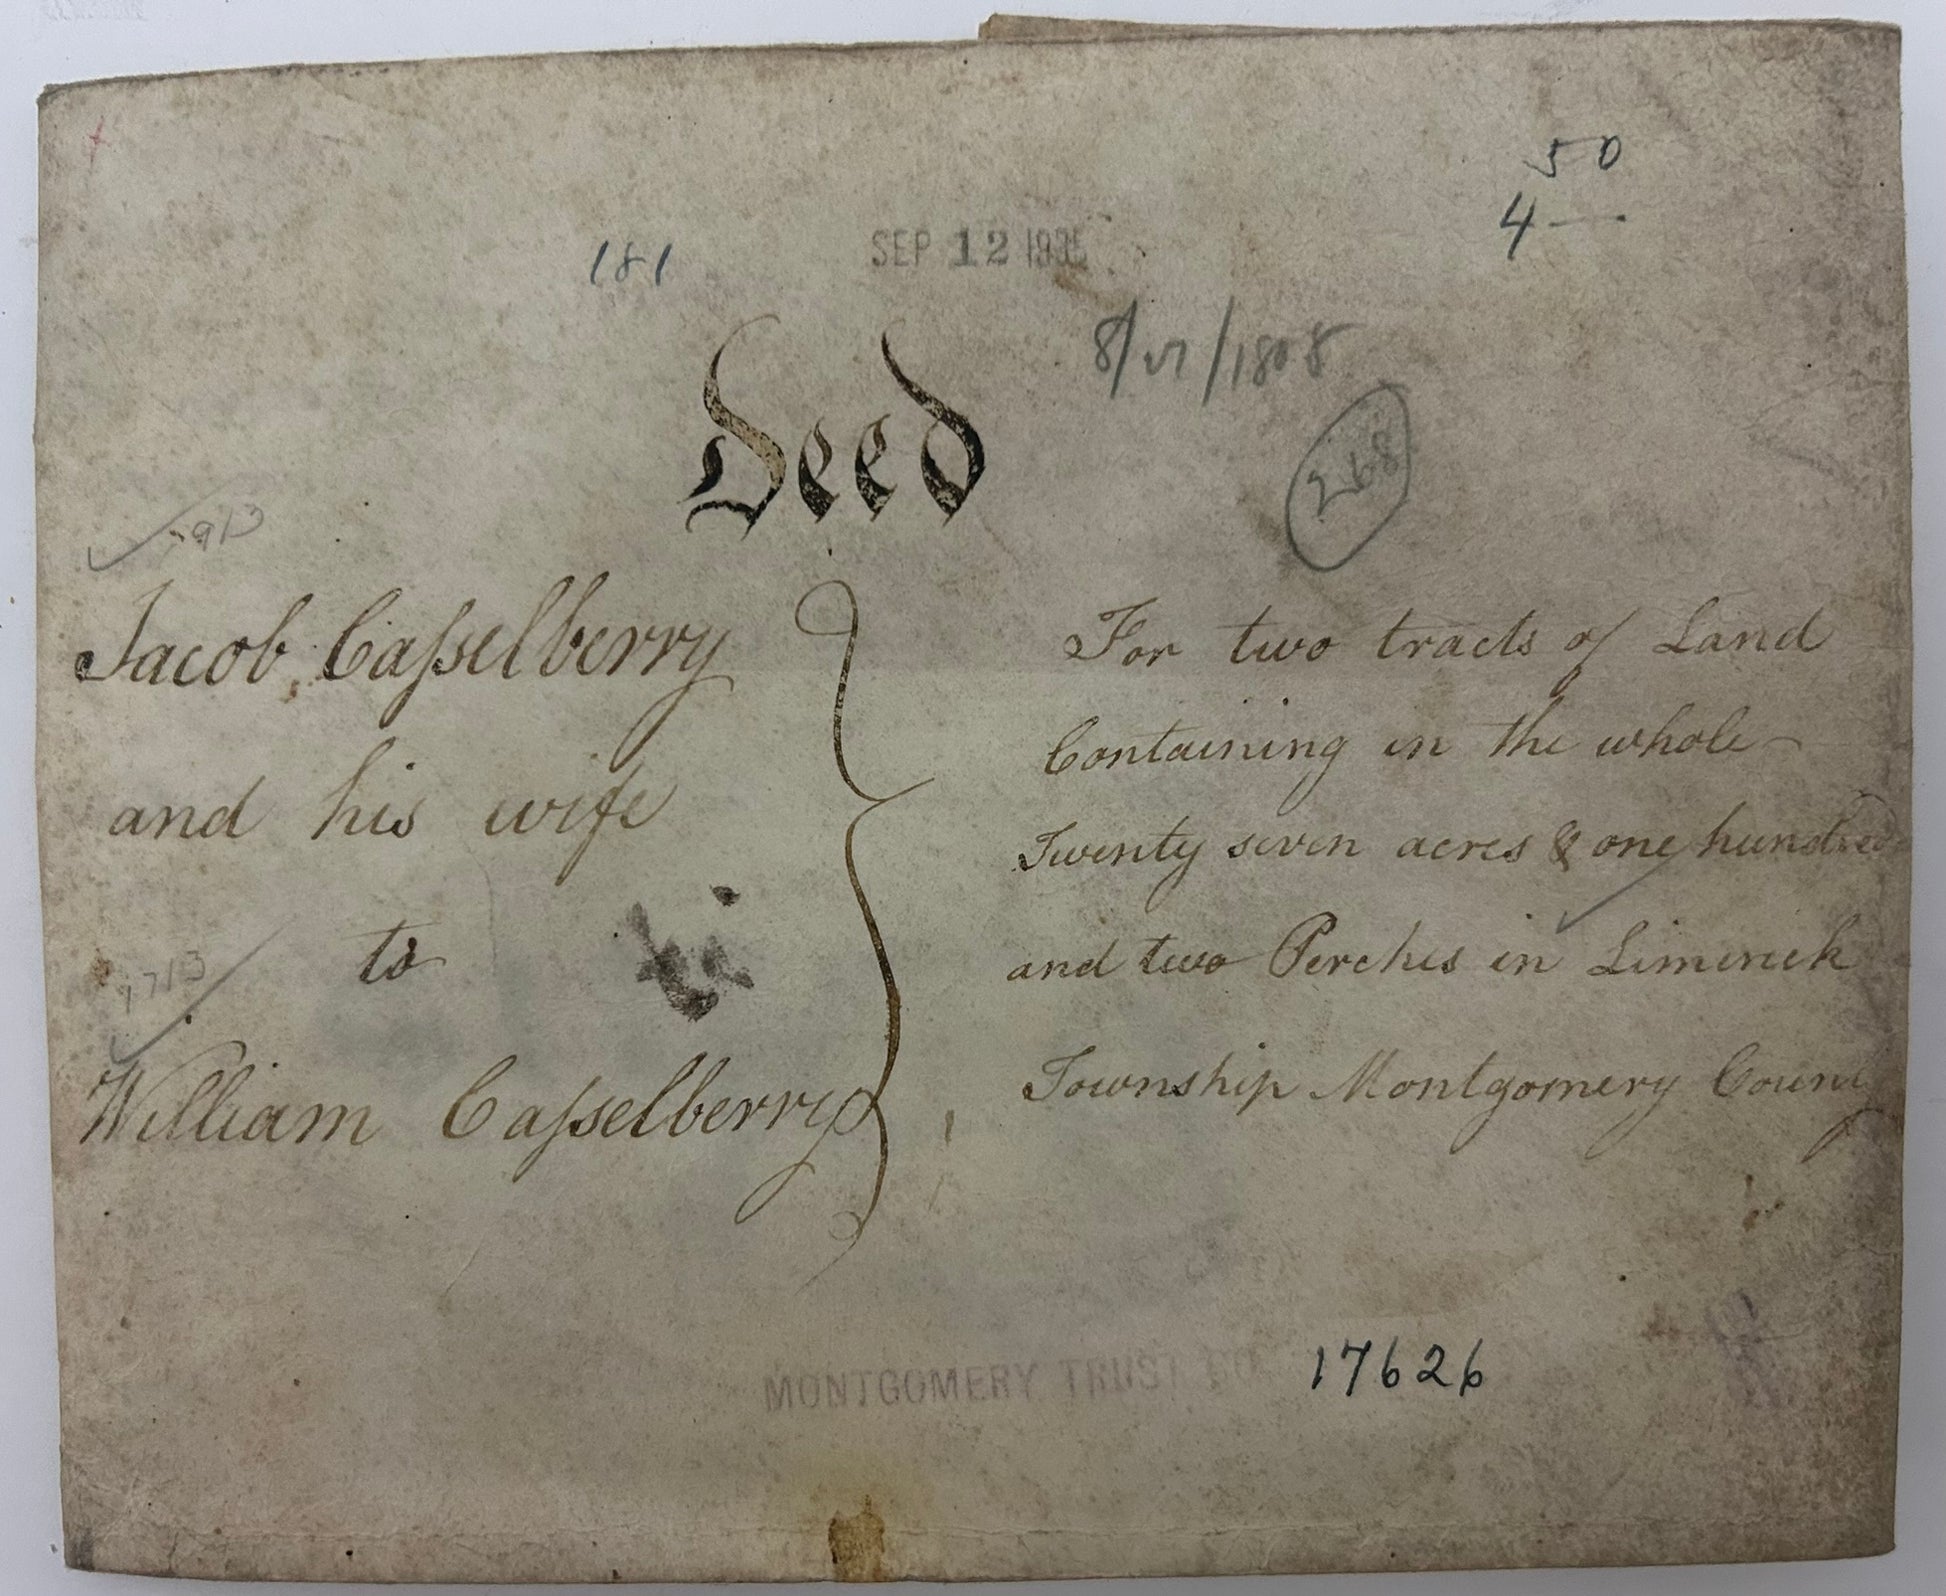 50
4 —
181
SEP 12 1935
8/27/1808
Deed
268
Jacob Caſselberry
and his wife
to
William Caſselberry
For two tracts of Land
Containing in the whole
Twenty seven acres & one hundred
and two Perches in Limerick
Township Montgomery County
MONTGOMERY TRUST CO
17626